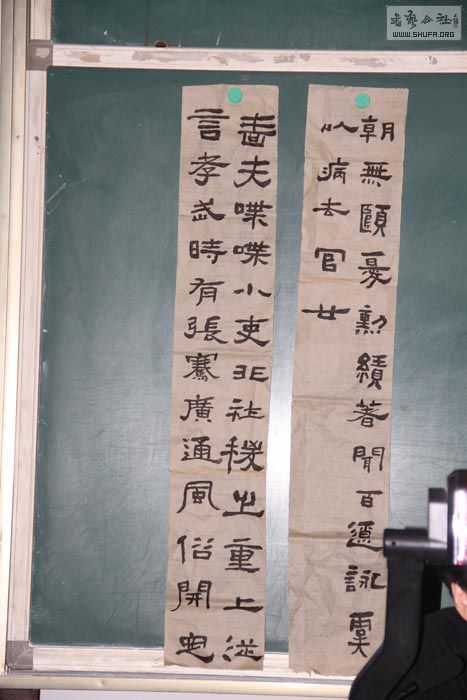 書藝公社
WWW.SHUFA.ORG
朝無頤憂勳績著聞百遼詠虞
以病去官廿
嗇夫喋喋小吏非社稷之重上從
言孝武時有張騫廣通風俗開定